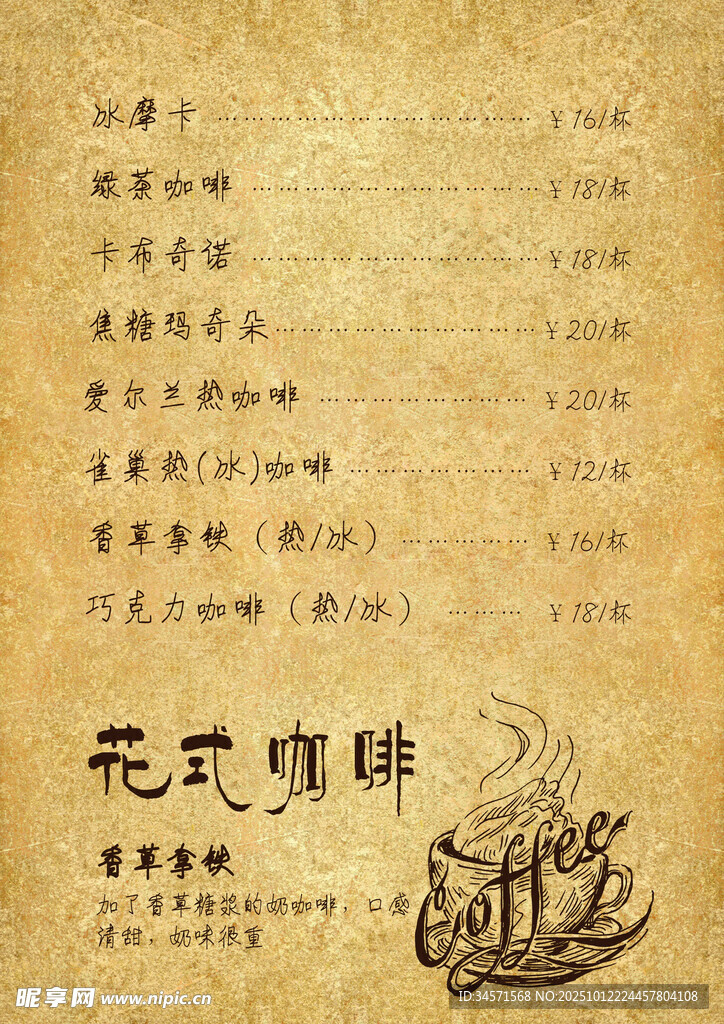 冰摩卡 ……………………………… ¥16/杯
绿茶咖啡 …………………………… ¥18/杯
卡布奇诺 …………………………… ¥18/杯
焦糖玛奇朵………………………… ¥20/杯
爱尔兰热咖啡 …………………… ¥20/杯
雀巢热(冰)咖啡 ………………… ¥12/杯
香草拿铁（热/冰） …………… ¥16/杯
巧克力咖啡（热/冰） ……… ¥18/杯
花式咖啡
香草拿铁
加了香草糖浆的奶咖啡，口感
清甜，奶味很重
Coffee
昵享网 www.nipic.cn
ID:34571568 NO:20251012224457804108